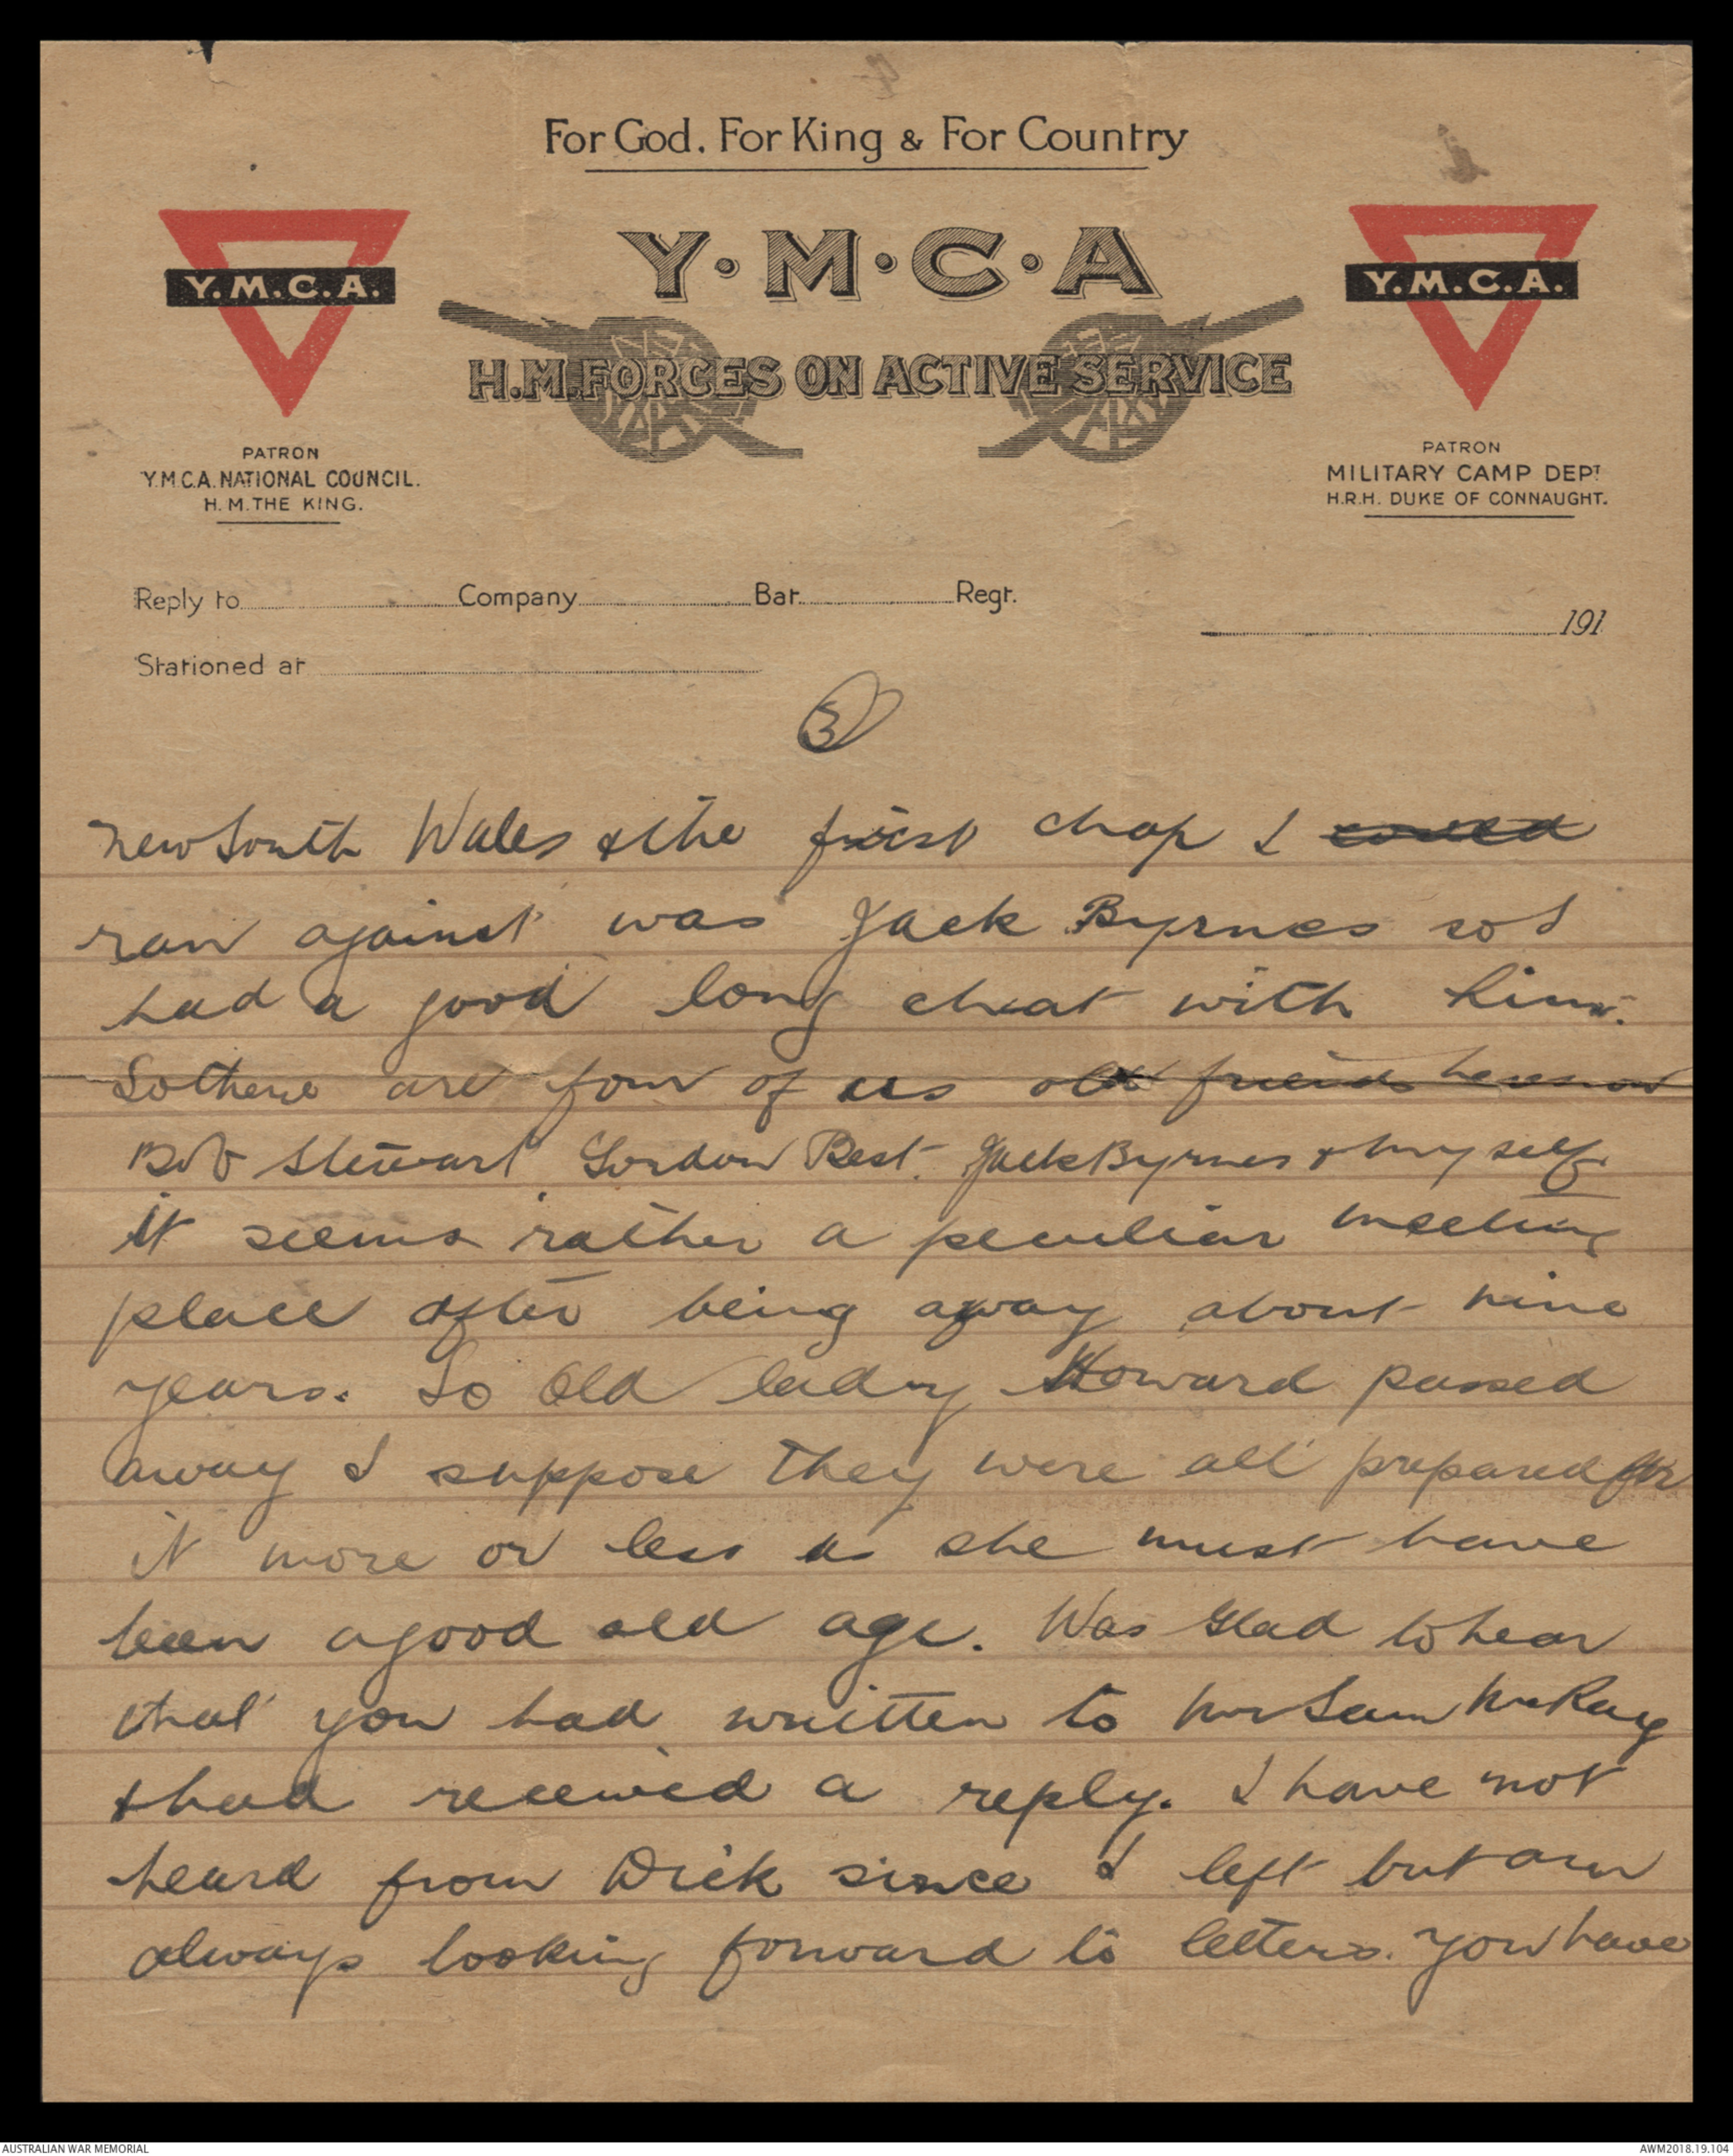 For God. For King & For Country
Y.M.C.A.
Y·M·C·A
Y.M.C.A.
H.M. FORCES ON ACTIVE SERVICE
PATRON
Y.M.C.A. NATIONAL COUNCIL.
H. M. THE KING.
PATRON
MILITARY CAMP DEPT
H.R.H. DUKE OF CONNAUGHT.
Reply to Company Bat. Regt.
191
Stationed at
3
New South Wales & the first chap I
ran against was Jack Byrnes so I
had a good long chat with him.
So there are four of us old friends here now
Bob Stewart Gordon Best. Jack Byrnes & myself
it seems rather a peculiar meeting
place after being away about nine
years. So Old lady Howard passed
away I suppose they were all prepared for
it more or less as she must have
been a good old age. Was glad to hear
that you had written to Mr Sam McKay
& had received a reply. I have not
heard from Dick since I left but am
always looking forward to letters. You have
AUSTRALIAN WAR MEMORIAL
AWM2018.19.104